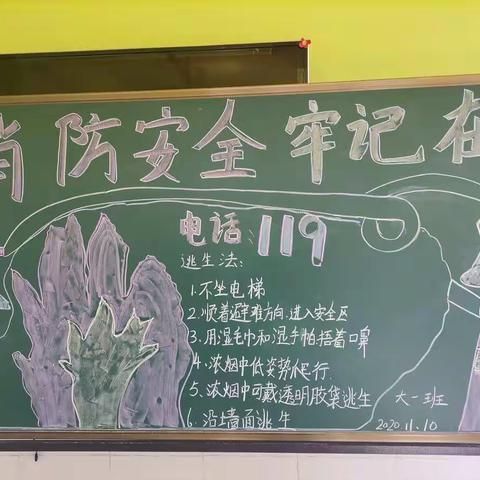 消防安全牢记在
电话:119
逃生法:
1.不坐电梯
2.顺着避难方向.进入安全区
3.用湿毛巾和湿手帕捂着口鼻
4.浓烟中低姿势爬行.
5.浓烟中可戴透明胶袋逃生
6.沿墙面逃生
大一班
2020.11.10